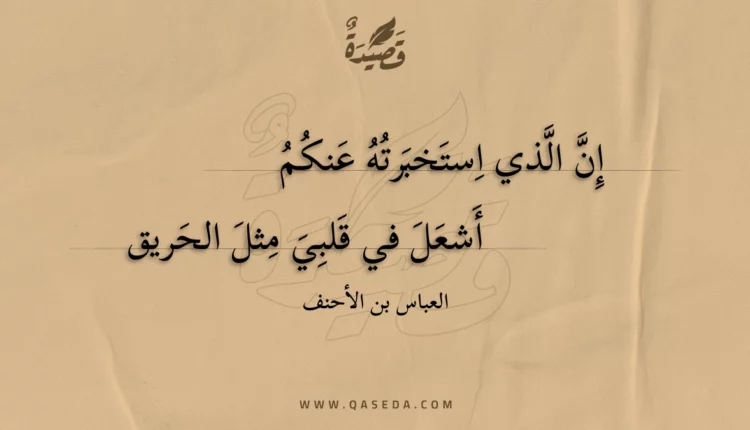 قَصِيْدَةٌ
إِنَّ الَّذي اِستَخبَرتُهُ عَنكُمُ
أَشعَلَ في قَلبِيَ مِثلَ الحَريق
العباس بن الأحنف
WWW.QASEDA.COM